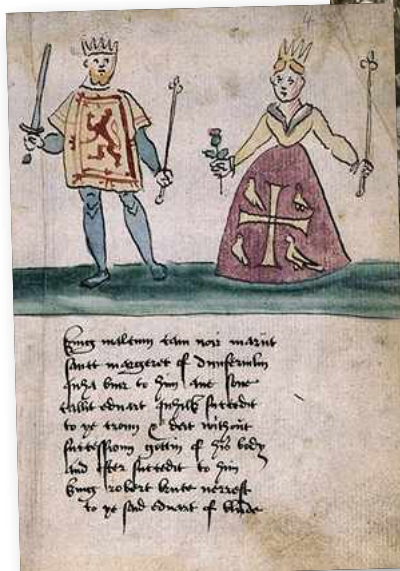 4
king malcum cam moir mariit
sanct margaret of dunfermlin
quha bur to him ane sone
callit eduart quhilk succedit
to ye croun & deit without
successioun gottin of his body
and efter succedit to him
king robert bruce nerrest
to ye said eduart of blude